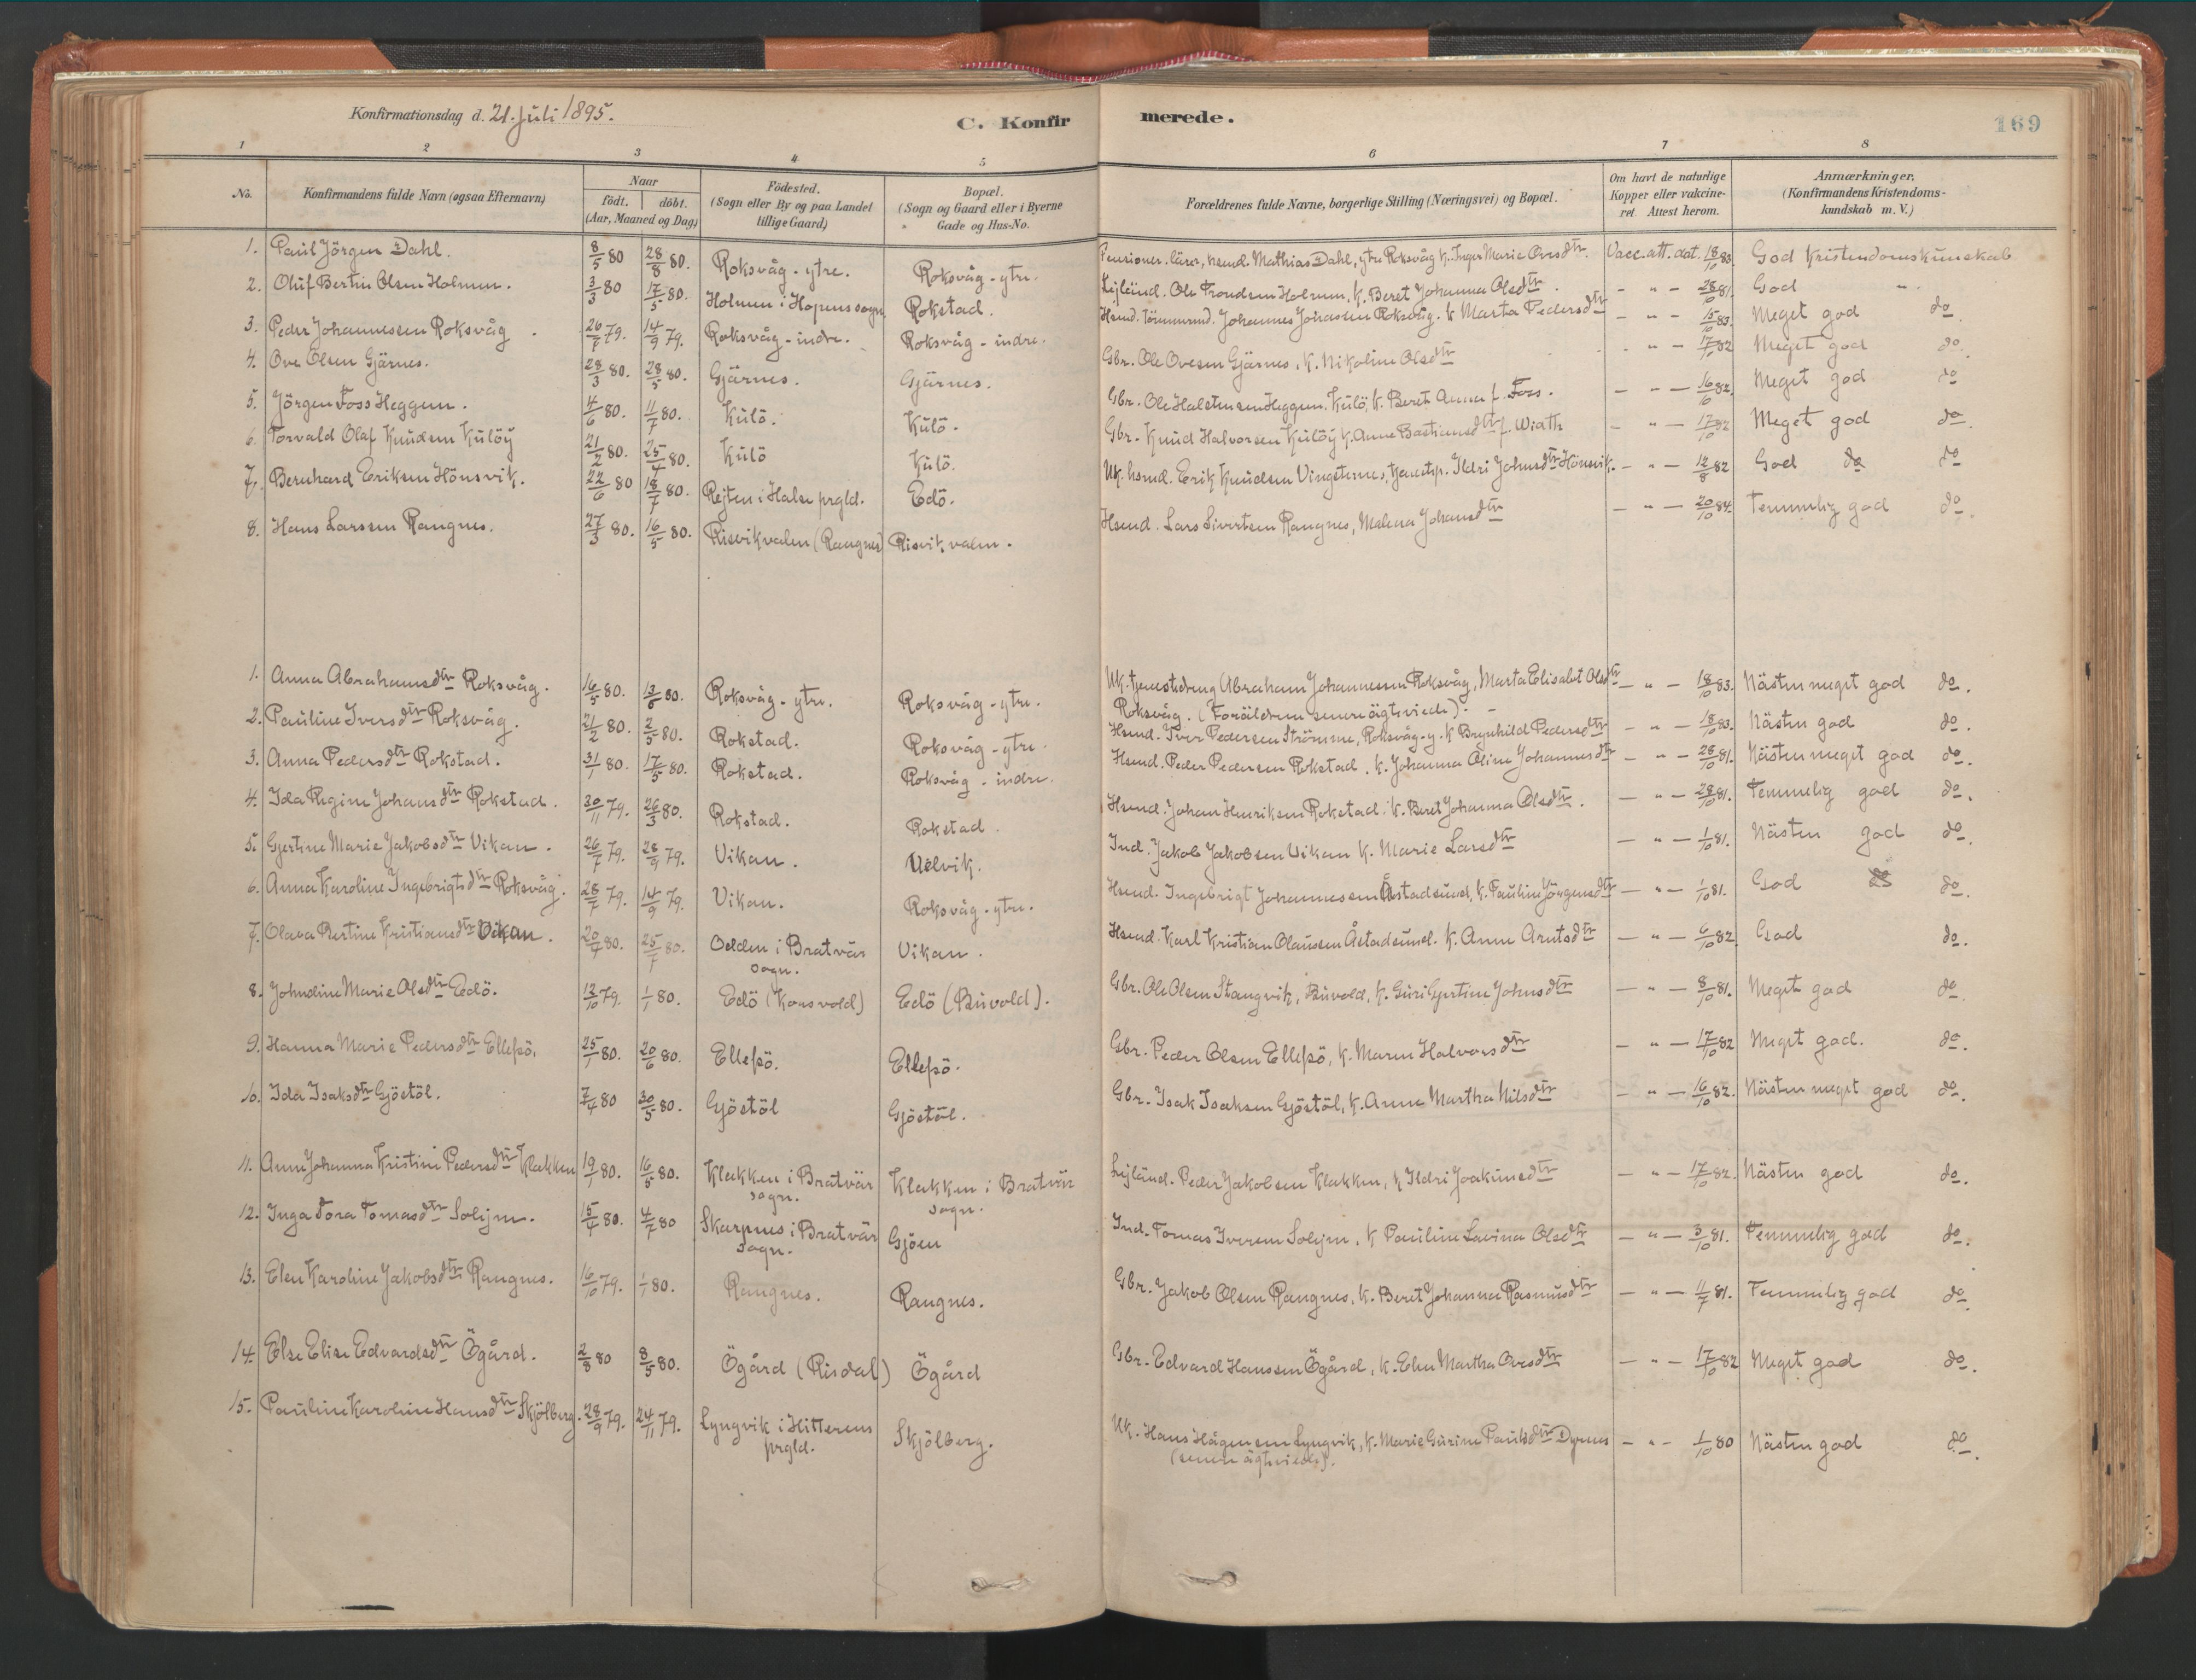 Konfirmationsdag d. 21. Juli 1895.
C. Konfirmerede.
169
1 2 3 4 5 6 7 8
No. Konfirmandens fulde Navn (ogsaa Efternavn) Naar födt. döbt. (Aar, Maaned og Dag) Födested. (Sogn eller By og paa Landet tillige Gaard) Bopæl. (Sogn og Gaard eller i Byerne Gade og Hus-No. Forældrenes fulde Navne, borgerlige Stilling (Næringsvei) og Bopæl. Om havt de naturlige Kopper eller vakcineret. Attest herom. Anmærkninger. (Konfirmandens Kristendomskundskab m. V.)
1. Paul Jörgen Dahl. 8/5 80 28/8 80. Roksvåg - ytre. Roksvåg - ytre. Pensioner. lärer, hsmd. Mathias Dahl, ytre Roksvåg K. Inger Marie Oves dtr. Vacc. att. dat. 18/10 83. God Kristendomskunskab
2. Oluf Bertin Olsen Holmen. 3/3 80 17/5 80. Holmen i Hopens sogn Rokstad. Lejländ. Ole Trondsen Holmen, K. Beret Johanna Olsdtr. - " - 28/10 81. God "
3. Peder Johannessen Roksvåg. 26/7 79. 14/9 79. Roksvåg - indre. Roksvåg - indre. Hsmd. Tömmermd. Johannes Johassen Roksvåg. K Marta Pedersdtr - " - 15/10 83. Meget god do.
4. Ove Olsen Gjärnes. 28/3 80. 28/5 80. Gjärnes. Gjärnes. Gbr. Ole Ovesen Gjärnes, K. Nikoline Olsdtr - " - 17/10 82 Meget god do.
5. Jörgen Foss Heggem. 4/6 80. 11/7 80. Kulö. Kulö. Gbr. Ole Halstensen Heggem, Kulö, K. Beret Anna f. Foss. - " - 16/6 82. Meget god do
6. Torvald Olaf Knudsen Kulöy 21/2 80. 25/4 80. Kulö Kulö. Gbr. Knud Halvorsen Kulöy K. Anne Bastiansdtr f. Wiath - " - 17/10 82 Meget god do.
7. Bernhard Eriksen Hönsvik. 22/6 80 18/7 80. Rejten i Halse prgld. Edö. Uk. hsmd. Erik Knudsen Vingsternes, tjenestp. Ildri Johnsdtr Hönsvik. - " - 12/8 82 God do do
8. Hans Larssen Rangnes. 27/3 80. 16/5 80. Risvikvalen (Rangnes) Risvikvalen. Hsmd. Lars Sivertsen Rangnes, Malena Johansdtr - " - 20/10 84. Temmelig god do.
1. Anna Abrahamsdtr Roksvåg. 16/5 80. 13/6 80. Roksvåg - ytre. Roksvåg - ytre. Uk. tjenestedreng Abraham Johannessen Roksvåg, Marta Elisabet Olsdtr - " - 18/10 83. Nästen meget god do.
Roksvåg. (Foräldrene senere ägteviede). -
2. Pauline Iversdtr Roksvåg. 21/2 80. 2/5 80. Rokstad. Roksvåg - ytre. Hsmd. Iver Pedersen Strömme, Roksvåg - y. K Brynhild Pedersdtr - " - 18/10 83. Nästen god do.
3. Anna Pedersdtr Rokstad. 31/1 80. 17/5 80. Rokstad. Roksvåg - indre. Hsmd. Peder Pedersen Rokstad. K. Johanna Oline Johannesdtr - " - 28/10 81. Nästen meget god do.
4. Ida Regine Johansdtr Rokstad. 30/11 79. 26/3 80. Rokstad. Rokstad. Hsmd. Johan Henriksen Rokstad. K. Beret Johanna Olsdtr. - " - 28/10 81. Temmelig god do.
5. Gjertine Marie Jakobsdtr Vikan. 26/7 79. 28/9 79. Vikan. Uelvik. Ind. Jakob Jakobsen Vikan K. Marie Larsdtr - " - 1/10 81. Nästen god do.
6. Anna Karoline Ingebrigtsdtr Roksvåg. 28/7 79. 14/9 79. Vikan. Roksvåg - ytre. Hsmd. Ingebrigt Johannessen Åstadsund, K. Pauline Jörgensdtr - " - 1/10 81. God do.
7. Olava Bertine Kristiansdtr Vikan. 20/4 80. 25/7 80. Odden i Bratvär sogn. Vikan. Hsmd. Karl Kristian Olaussen Åstadsund. K. Anne Arntsdtr - " - 6/10 82. God do.
8. Johndine Marie Olsdtr Edö. 12/10 79. 1/1 80. Edö (Korsvold) Edö (Buvold). Gbr. Ole Olsen Stangvik, Buvold, K. Guri Gjertine Johnsdtr - " - 8/10 81. Meget god do.
9. Hanna Marie Pedersdtr Ellefsö. 25/1 80. 20/6 80. Ellefsö. Ellefsö. Gbr. Peder Olsen Ellefsö, K. Maren Halvorsdtr - " - 17/10 82 Meget god. do.
10. Ida Isaksdtr Gjöstöl. 7/4 80 30/5 80. Gjöstöl Gjöstöl. Gbr. Isak Isaksen Gjöstöl, K. Anne Martha Nilsdtr - " - 16/10 82. Nästen meget god do.
11. Anne Johanna Kristine Pedersdtr Klakken 19/1 80. 16/5 80. Klakken i Bratvär sogn. Klakken i Bratvär sogn. Lejländ. Peder Jakobsen Klakken, K Ildri Joakimsdtr - " - 17/10 82. Nästen god do.
12. Inga Tora Tomasdtr Solijm. 15/4 80. 4/7 80 Skarpnes i Bratvär sogn. Gjöen Ind. Tomas Iversen Solijm, K Pauline Lavina Olsdtr - " - 3/10 81. Temmelig god do.
13. Elen Karoline Jakobsdtr Rangnes. 16/10 79. 1/1 80. Rangnes. Rangnes. Gbr. Jakob Olsen Rangnes, K. Beret Johanna Rasmusdtr - " - 11/7 81. Temmelig god do.
14. Else Elise Edvardsdtr Ögård. 2/8 80 8/5 80. Ögård (Risdal) Ögård Gbr. Edvard Hanssen Ögård, K. Elen Martha Ovesdtr - " - 17/10 82 Meget god do.
15. Pauline Karoline Hansdtr Skjölberg. 28/9 79. 24/11 79. Lyngvik i Hitterens prgld. Skjölberg. Uk. Hans Hågensen Lyngvik, K. Marie Gurine Paulsdtr Dyrnes - " - 1/10 80 Nästen god do.
(senere ägteviede).